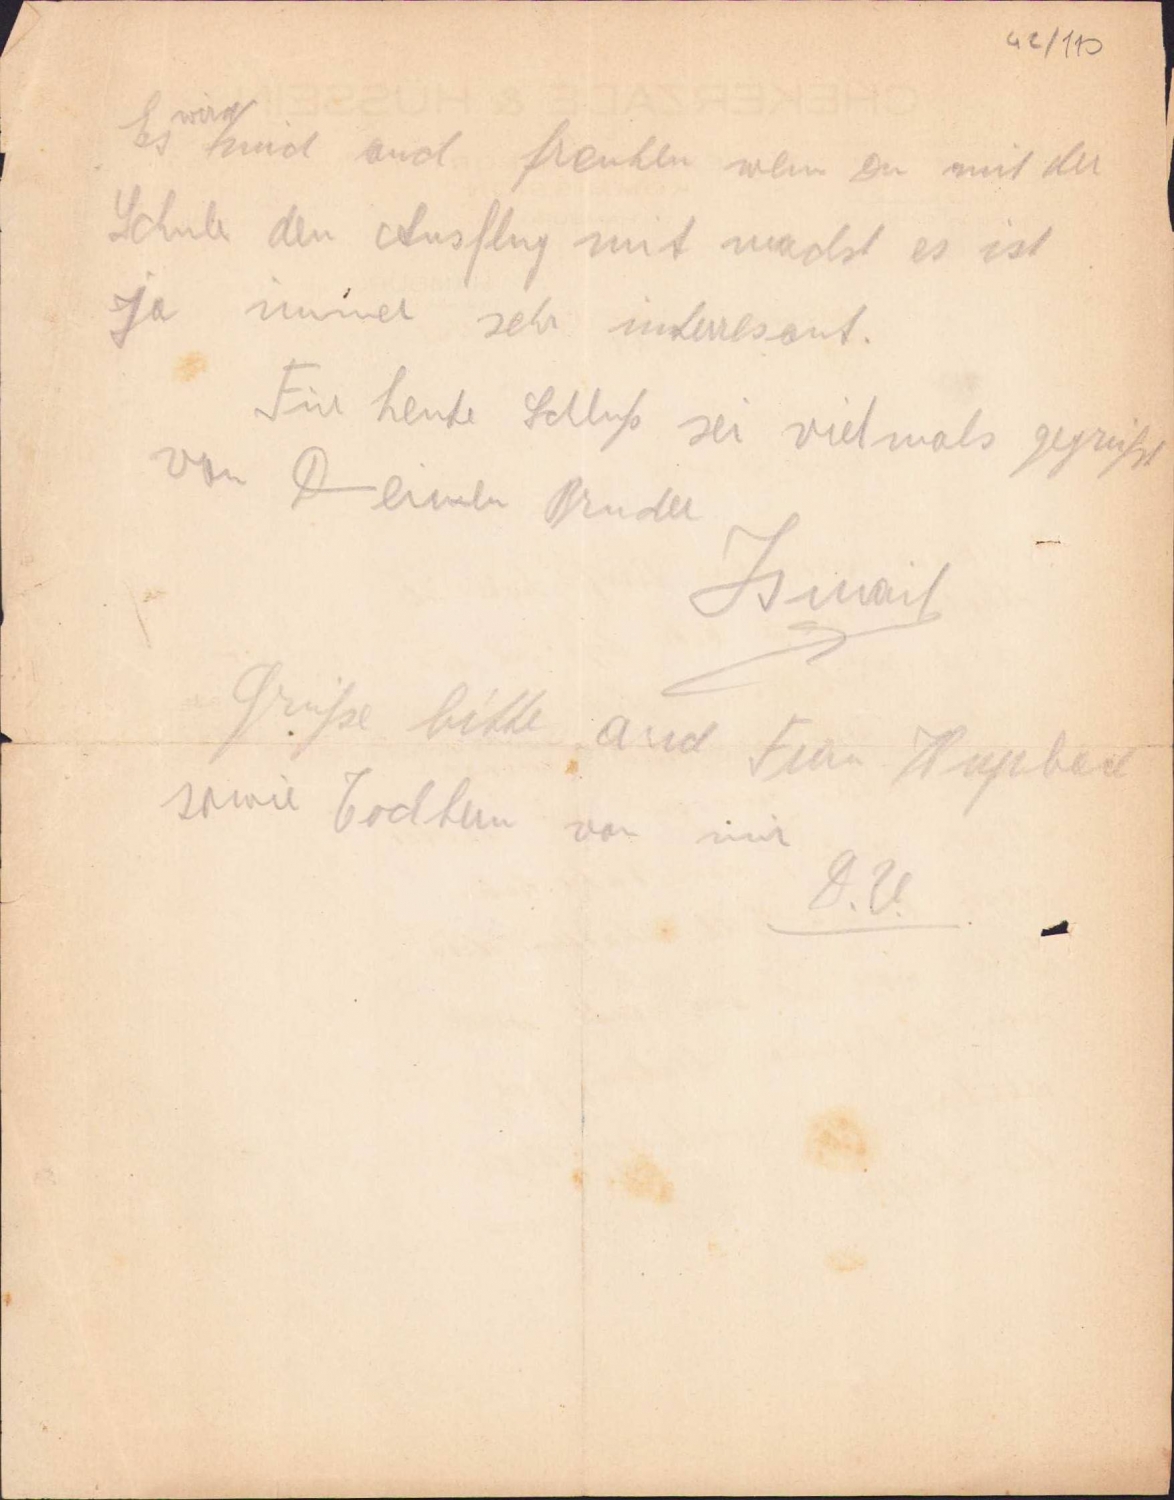 42/110
Es wird mich auch freuhen wenn du mit der
Schule den Ausflug mit machst es ist
ja immer sehr interresant.
Für heute Schluß sei vielmals gegrüßt
von Deinen Bruder
Ismail
Grüße bitte auch Frau
sowie Tochtern von mir
D.U.
CHEKERZADE & HUSSEIN